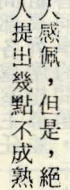 人感佩，但是，絕
人提出幾點不成熟